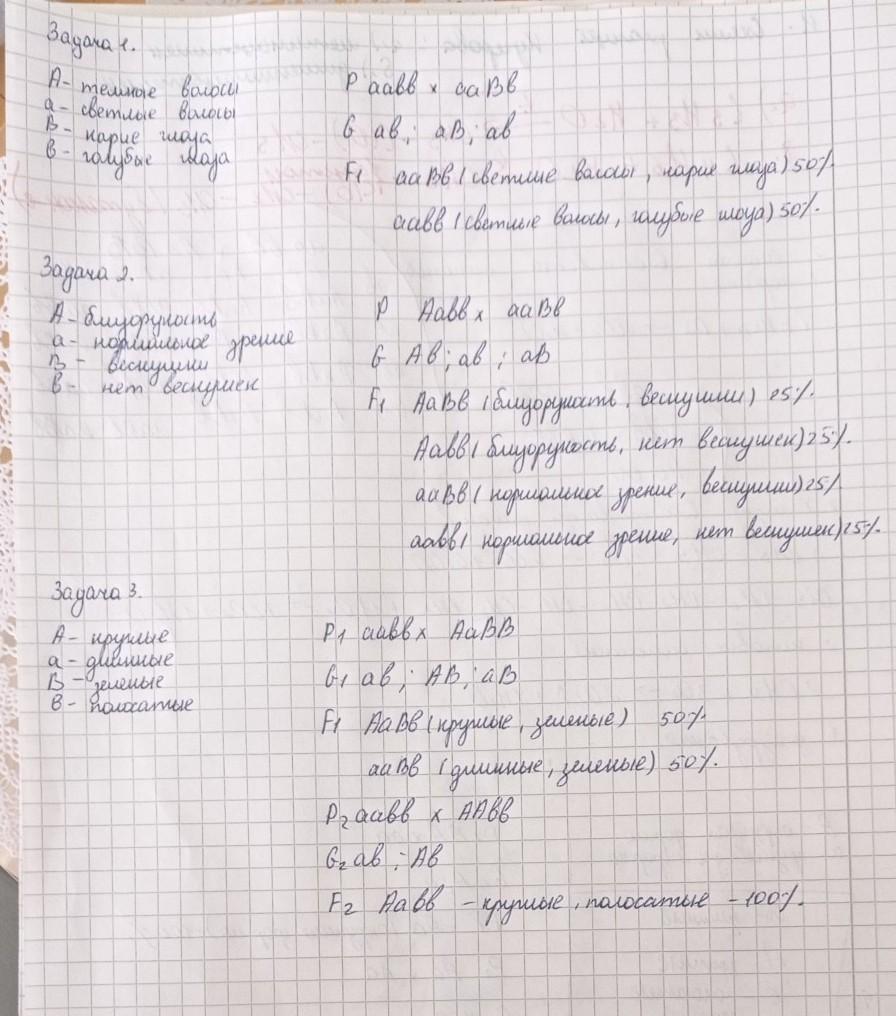 Задача 1.
А- темные волосы
а- светлые волосы
В- карие глаза
в- голубые глаза
Р аавв х ааВв
G ав; аВ; ав
F1 ааВв (светлые волосы, карие глаза) 50%.
аавв (светлые волосы, голубые глаза) 50%.
Задача 2.
А- близорукость
а- нормальное зрение
В- веснушки
в- нет веснушек
Р Аавв х ааВв
G Ав; ав; аВ
F1 АаВв (близорукость, веснушки) 25%.
Аавв (близорукость, нет веснушек) 25%.
ааВв (нормальное зрение, веснушки) 25%
аавв (нормальное зрение, нет веснушек) 25%.
Задача 3.
А- круглые
а- длинные
В- зеленые
в- полосатые
Р1 аавв х АаВВ
G1 ав; АВ; аВ
F1 АаВв (круглые, зеленые) 50%
ааВв (длинные, зеленые) 50%.
Р2 аавв х ААвв
G2 ав; Ав
F2 Аавв - круглые, полосатые - 100%.